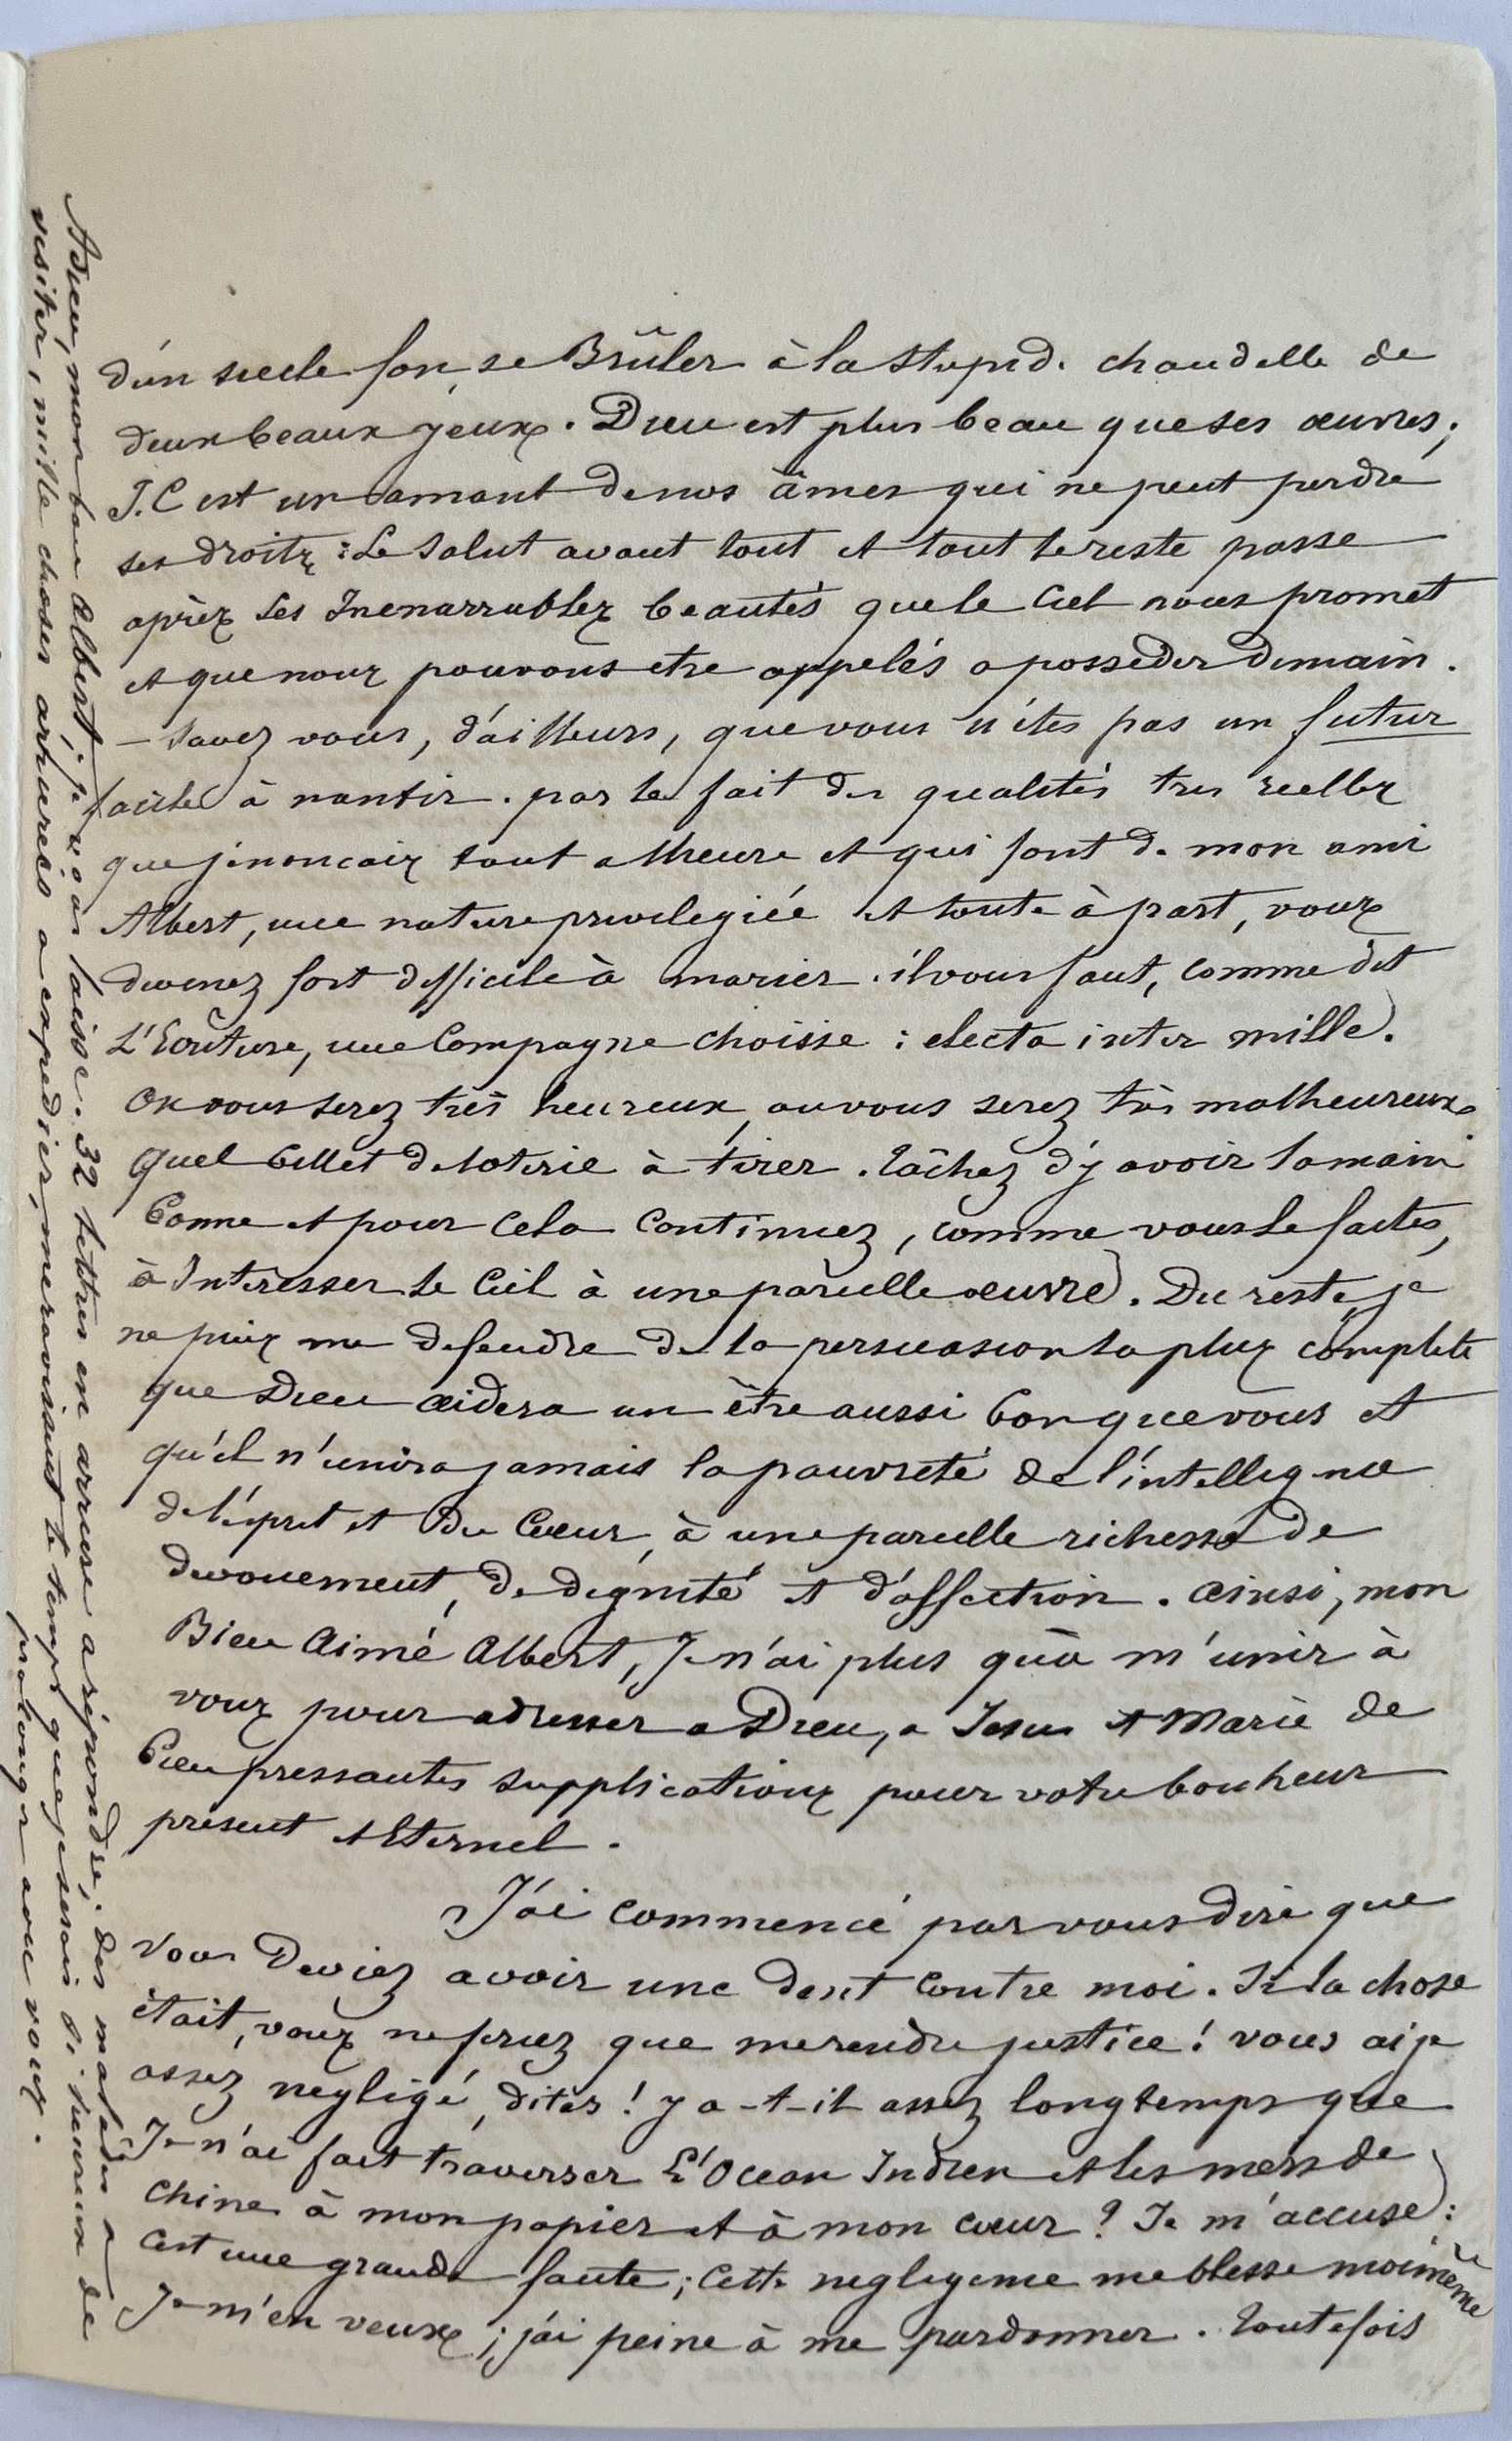 d'un siecle fou, se Brûler à la stupide chandelle de
deux beaux yeux. Dieu est plus beau que ses œuvres;
J.C est un amant de nos âmes qui ne peut perdre
ses droits : Le Salut avant tout et tout le reste passe
après les Inenarrables beautés que le Ciel nous promet
et que nous pouvons etre appelés a posseder demain.
— Savez vous, d'ailleurs, que vous n'êtes pas un futur
facile à nantir. par le fait des qualités tres reelles
que j'enoncais tout a l'heure et qui font de mon ami
Albert, une nature privilegiée et toute à part, vous
devenez fort difficile à marier. il vous faut, comme dit
L'Ecriture, une Compagne choisie : electa inter mille.
Ou vous serez très heureux, ou vous serez très malheureux.
Quel billet de loterie à tirer. Tâchez d'y avoir la main
bonne et pour cela continuez, comme vous le faites,
à Interesser le Ciel à une pareille œuvre. Du reste, je
ne puis me defendre de la persuasion la plus complete
que Dieu aidera un être aussi bon que vous et
qu'il n'unira jamais la pauvreté de l'intelligence
de l'esprit et du Cœur, à une pareille richesse de
devouement, de dignité et d'affection. ainsi, mon
Bien Aimé Albert, Je n'ai plus qu'à m'unir à
vous pour adresser a Dieu, a Jesus et Marie de
bien pressantes supplications pour votre bonheur
present et Eternel.
J'ai commencé par vous dire que
Vous Deviez avoir une dent contre moi. Si la chose
était, vous ne feriez que me rendre justice! vous ai je
assez negligé, dites! y a-t-il assez longtemps que
Je n'ai fait traverser L'Ocean Indien et les mers de
Chine à mon papier et à mon cœur? Je m'accuse :
C'est une grande faute; Cette negligence me blesse moi même
Je m'en veux; j'ai peine à me pardonner. Toutefois
Adieu, mon bon Albert; je vous laisse. 32 lettres en arriere a répondre; des malades a
visiter, mille choses arhurés a expedier, me ravissent le temps que je serais si heureux de
prolonger avec vous.